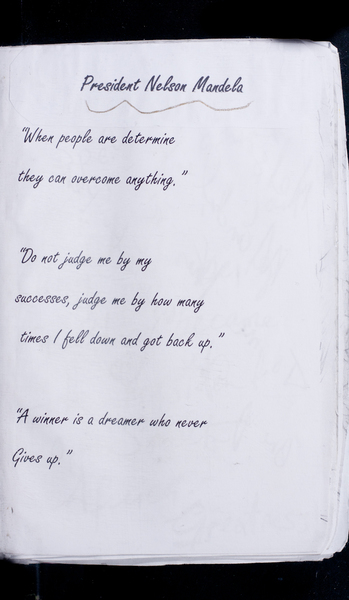 President Nelson Mandela
"When people are determine
they can overcome anything."
"Do not judge me by my
successes, judge me by how many
times I fell down and got back up."
"A winner is a dreamer who never
Gives up."